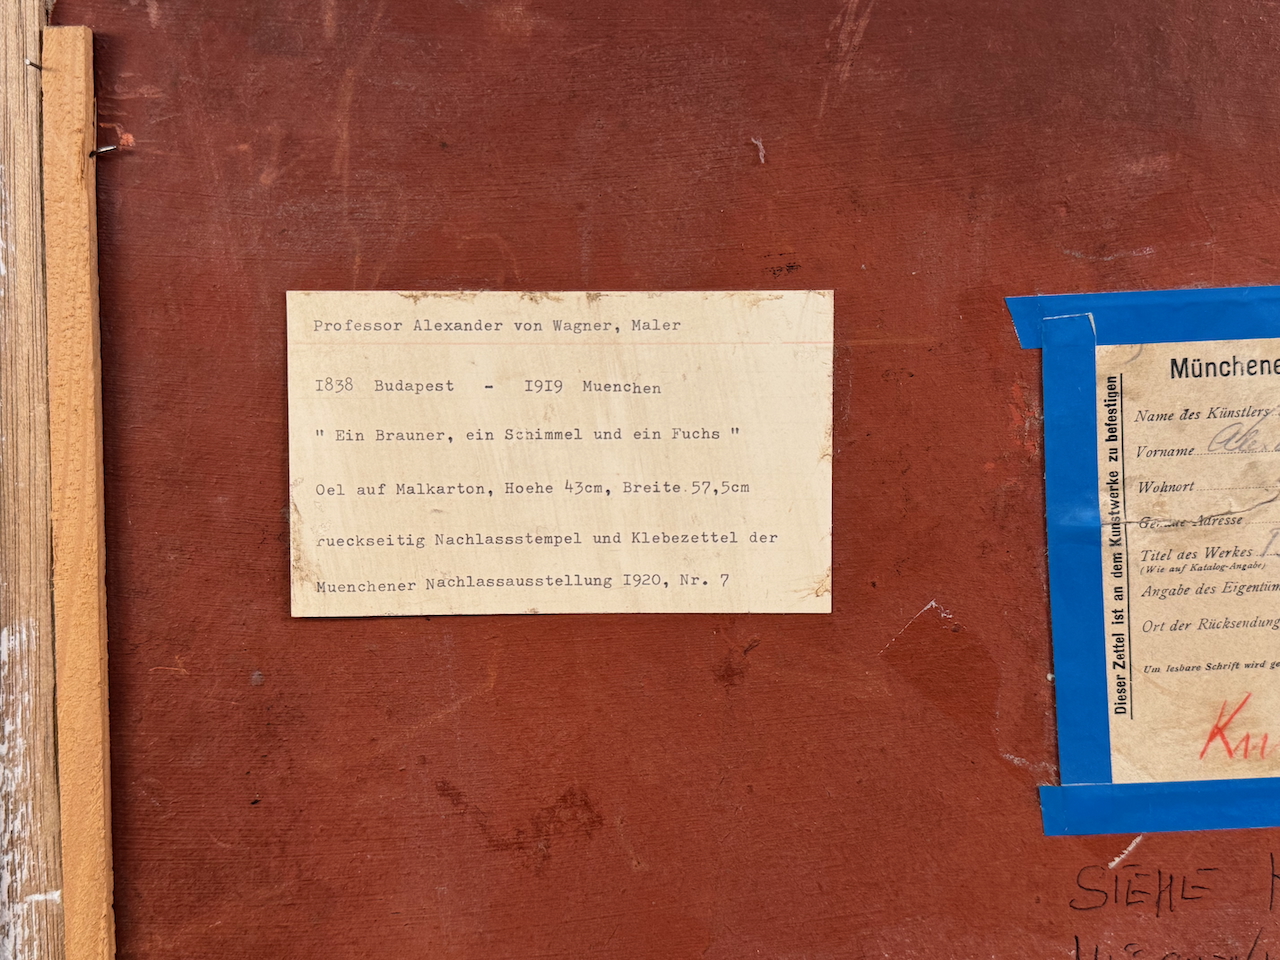 Professor Alexander von Wagner, Maler
1838 Budapest - 1919 Muenchen
" Ein Brauner, ein Schimmel und ein Fuchs "
Oel auf Malkarton, Hoehe 43cm, Breite 57,5cm
rueckseitig Nachlassstempel und Klebezettel der
Muenchener Nachlassausstellung 1920, Nr. 7
Dieser Zettel ist an dem Kunstwerke zu befestigen
Münchene
Name des Künstlers
Vorname
Wohnort
Genaue Adresse
Titel des Werkes
(Wie auf Katalog-Angabe)
Angabe des Eigentüm
Ort der Rücksendung
Um lesbare Schrift wird ge
SIEHE